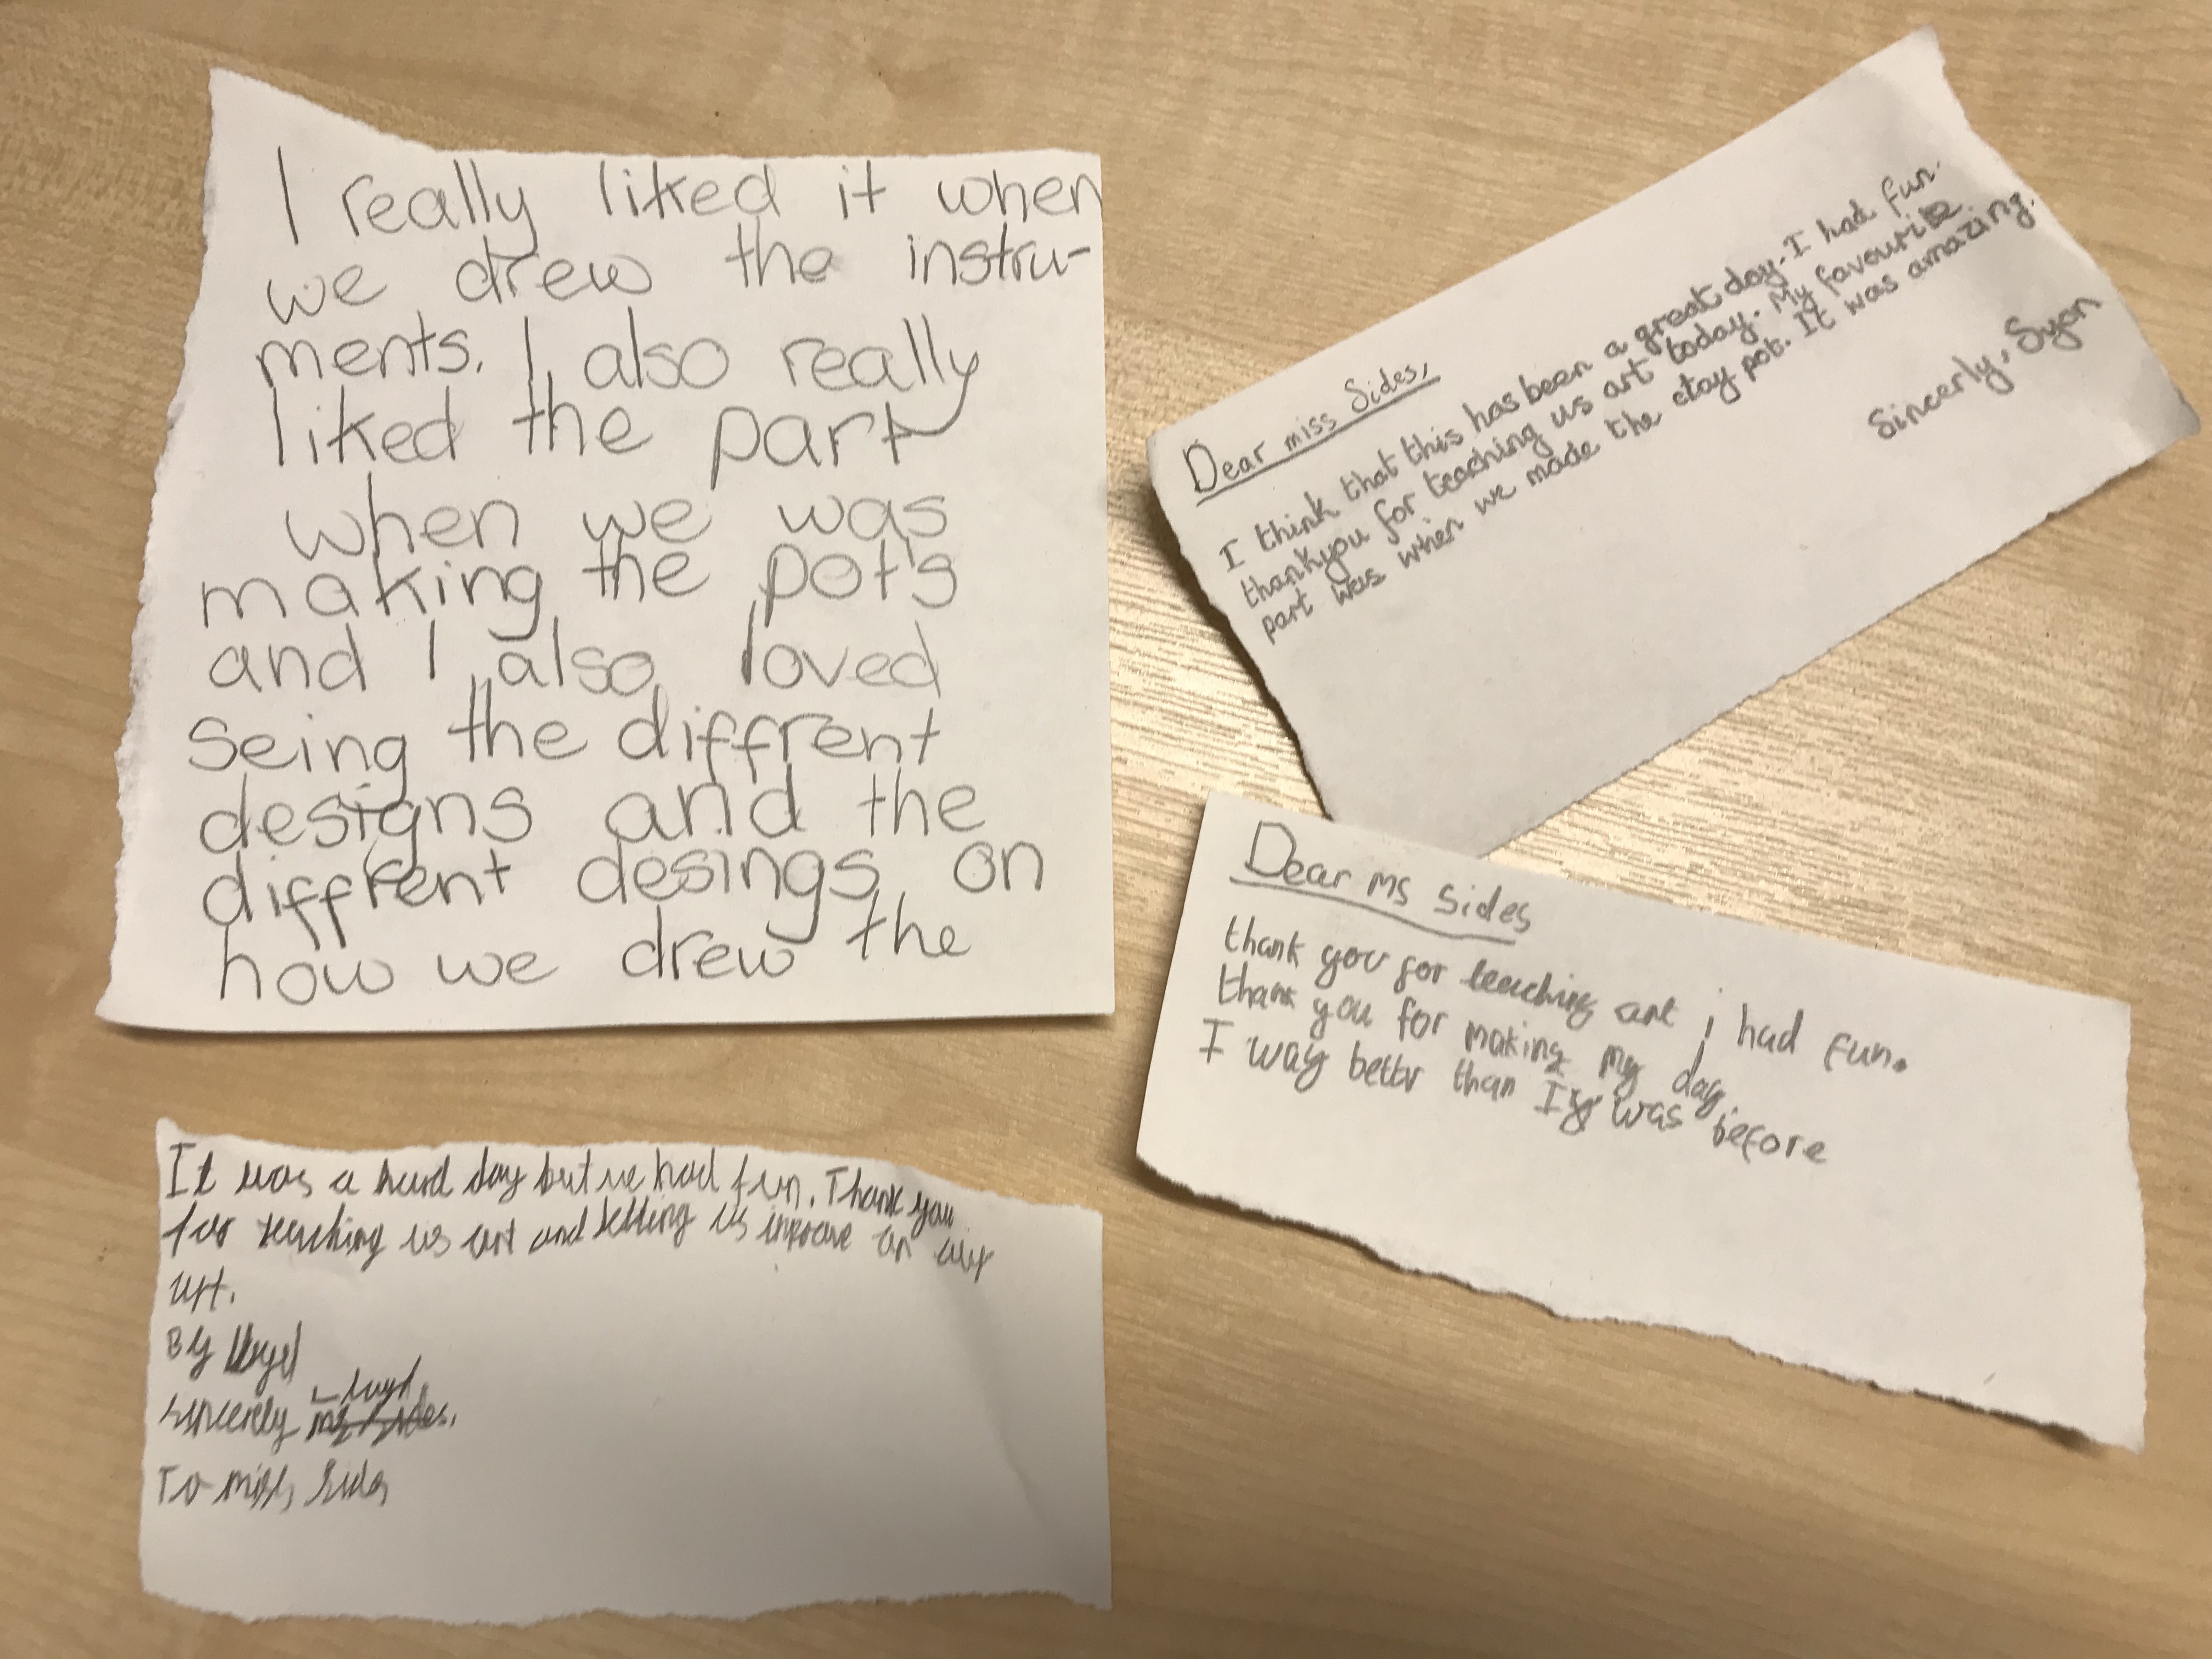 I really liked it when
we drew the instru-
ments. I also really
liked the part
when we was
making the pot's
and I also loved
seing the diffrent
designs and the
diffrent desings on
how we drew the
Dear miss Sides,
I think that this has been a great day. I had fun.
thankyou for teaching us art today. My favourite
part was when we made the clay pot. It was amazing.
Sincerly, Syon
Dear ms sides
thank you for teaching art i had fun.
thank you for making my day
I way bettr than I was before
It was a hard day but we had fun. Thank you
for teaching us art and letting us improve on our
art.
By Lloyd
sincerely Lloyd
To miss sides